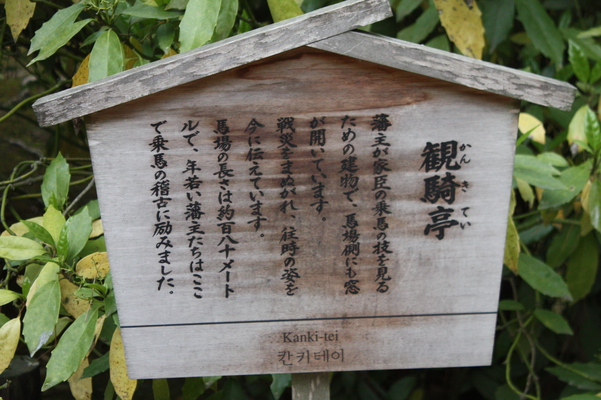 観騎亭
かんきてい
藩主が家臣の乗馬の技を見る
ための建物で、馬場側にも窓
が開いています。
戦災をまぬがれ、往時の姿を
今に伝えています。
馬場の長さは約百八十メート
ルで、年若い藩主たちはここ
で乗馬の稽古に励みました。
Kanki-tei
칸키테이